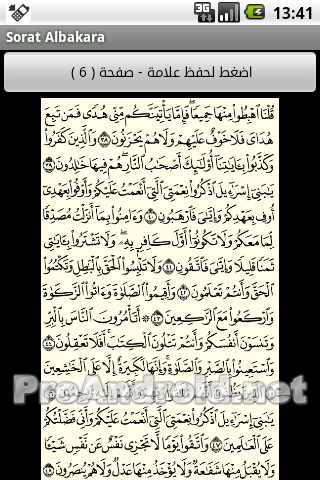 13:41
3G
Sorat Albakara
اضغط لحفظ علامة - صفحة ( 6 )
قُلْنَا ٱهْبِطُوا۟ مِنْهَا جَمِيعًا ۖ فَإِمَّا يَأْتِيَنَّكُم مِّنِّى هُدًى فَمَن تَبِعَ
هُدَاىَ فَلَا خَوْفٌ عَلَيْهِمْ وَلَا هُمْ يَحْزَنُونَ ٣٨ وَٱلَّذِينَ كَفَرُوا۟
وَكَذَّبُوا۟ بِـَٔايَـٰتِنَآ أُو۟لَـٰٓئِكَ أَصْحَـٰبُ ٱلنَّارِ ۖ هُمْ فِيهَا خَـٰلِدُونَ ٣٩
يَـٰبَنِىٓ إِسْرَٰٓءِيلَ ٱذْكُرُوا۟ نِعْمَتِىَ ٱلَّتِىٓ أَنْعَمْتُ عَلَيْكُمْ وَأَوْفُوا۟ بِعَهْدِىٓ
أُوفِ بِعَهْدِكُمْ وَإِيَّـٰىَ فَٱرْهَبُونِ ٤٠ وَءَامِنُوا۟ بِمَآ أَنزَلْتُ مُصَدِّقًا
لِّمَا مَعَكُمْ وَلَا تَكُونُوٓا۟ أَوَّلَ كَافِرٍۭ بِهِۦ ۖ وَلَا تَشْتَرُوا۟ بِـَٔايَـٰتِى
ثَمَنًا قَلِيلًا وَإِيَّـٰىَ فَٱتَّقُونِ ٤١ وَلَا تَلْبِسُوا۟ ٱلْحَقَّ بِٱلْبَـٰطِلِ وَتَكْتُمُوا۟
ٱلْحَقَّ وَأَنتُمْ تَعْلَمُونَ ٤٢ وَأَقِيمُوا۟ ٱلصَّلَوٰةَ وَءَاتُوا۟ ٱلزَّكَوٰةَ
وَٱرْكَعُوا۟ مَعَ ٱلرَّٰكِعِينَ ٤٣ ۞ أَتَأْمُرُونَ ٱلنَّاسَ بِٱلْبِرِّ
وَتَنسَوْنَ أَنفُسَكُمْ وَأَنتُمْ تَتْلُونَ ٱلْكِتَـٰبَ ۚ أَفَلَا تَعْقِلُونَ ٤٤
وَٱسْتَعِينُوا۟ بِٱلصَّبْرِ وَٱلصَّلَوٰةِ ۚ وَإِنَّهَا لَكَبِيرَةٌ إِلَّا عَلَى ٱلْخَـٰشِعِينَ
ProAndroid.net
يَـٰبَنِىٓ إِسْرَٰٓءِيلَ ٱذْكُرُوا۟ نِعْمَتِىَ ٱلَّتِىٓ أَنْعَمْتُ عَلَيْكُمْ وَأَنِّى فَضَّلْتُكُمْ
عَلَى ٱلْعَـٰلَمِينَ ٤٧ وَٱتَّقُوا۟ يَوْمًا لَّا تَجْزِى نَفْسٌ عَن نَّفْسٍ شَيْـًٔا
وَلَا يُقْبَلُ مِنْهَا شَفَـٰعَةٌ وَلَا يُؤْخَذُ مِنْهَا عَدْلٌ وَلَا هُمْ يُنصَرُونَ ٤٨